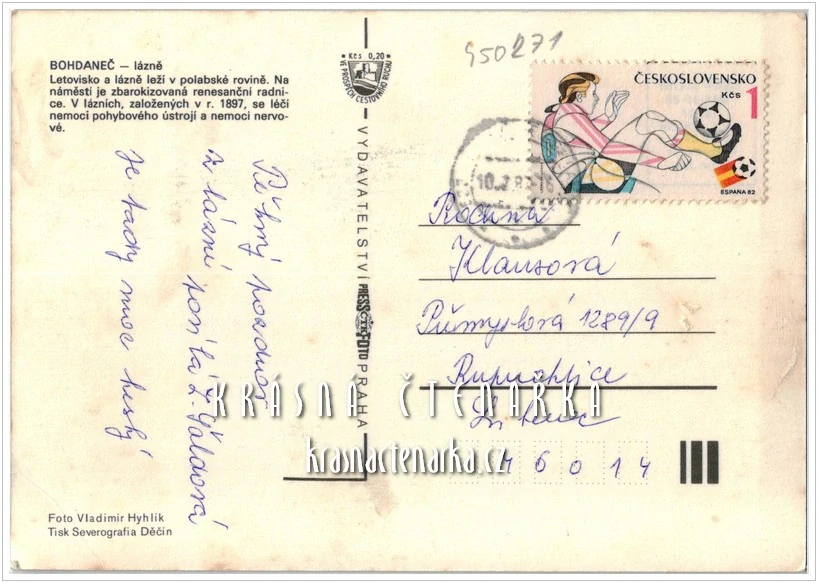 BOHDANEČ — lázně
Letovisko a lázně leží v polabské rovině. Na
náměstí je zbarokizovaná renesanční radni-
ce. V lázních, založených v r. 1897, se léčí
nemoci pohybového ústrojí a nemoci nervo-
vé.
Kčs 0,20
VE PROSPĚCH CESTOVNÍHO RUCHU
VYDAVATELSTVÍ PRESSFOTO PRAHA
ČTK
450271
ČESKOSLOVENSKO
Kčs 1
ESPAÑA 82
Pěkný pozdrav
z lázní posílá
Je tady moc hezky
Rodina
Klausová
Průmyslová 1289/9
Ruprechtice
Liberec
46014
KRÁSNÁ ČTENÁŘKA
krasnactenarka.cz
Foto Vladimír Hyhlík
Tisk Severografia Děčín